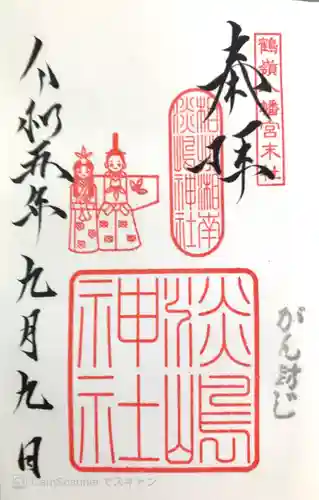 鶴嶺八幡宮末社
奉拝
相州湘南
淡嶋神社
がん封じ
淡嶋
神社
令和五年九月九日
CamScanner でスキャン